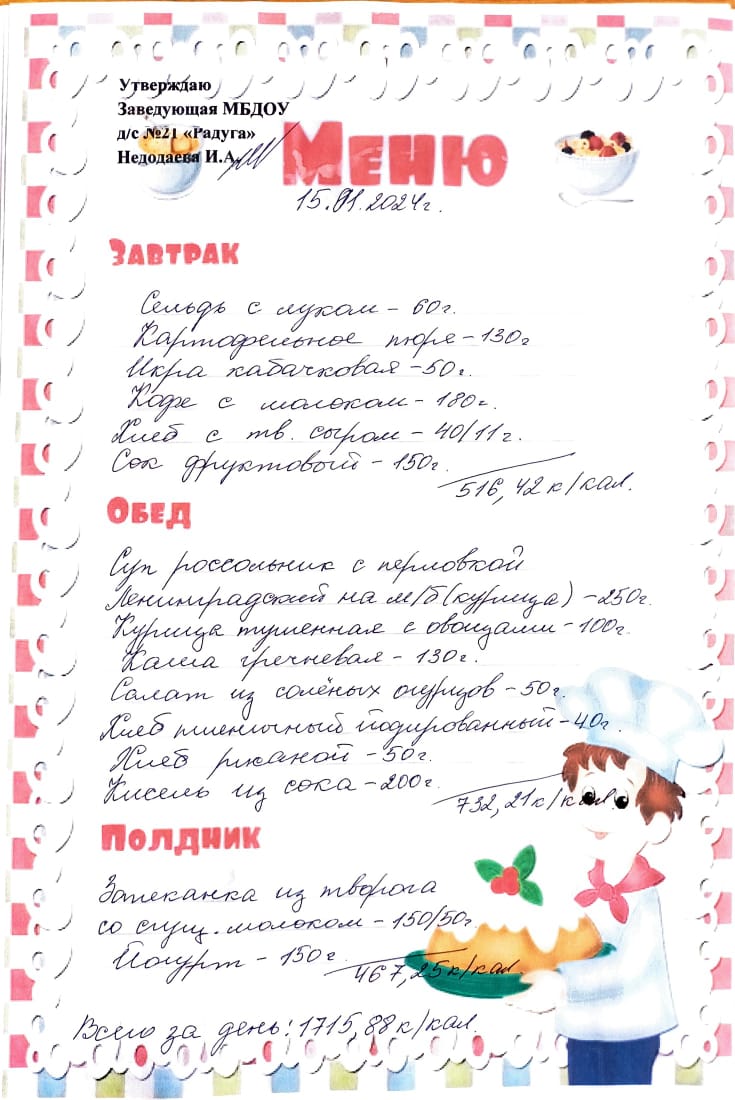 Утверждаю
Заведующая МБДОУ
д/с №21 «Радуга»
Недодаева И.А.
Меню
15.01.2024г.
Завтрак
Сельдь с луком – 60г.
Картофельное пюре – 130г
Икра кабачковая – 50г.
Кофе с молоком – 180г.
Хлеб с тв. сыром – 40/11г.
Сок фруктовый – 150г.
516,42 к/кал.
Обед
Суп россольник с перловкой
Ленинградский на м/б (курица) – 250г.
Курица тушенная с овощами – 100г.
Каша гречневая – 130г.
Салат из солёных огурцов – 50г.
Хлеб пшеничный йодированный – 40г.
Хлеб ржаной – 50г.
Кисель из сока – 200г.
732,21 к/кал.
Полдник
Запеканка из творога
со сгущ. молоком – 150/50г.
Йогурт – 150г.
467,25 к/кал.
Всего за день: 1715,88 к/кал.